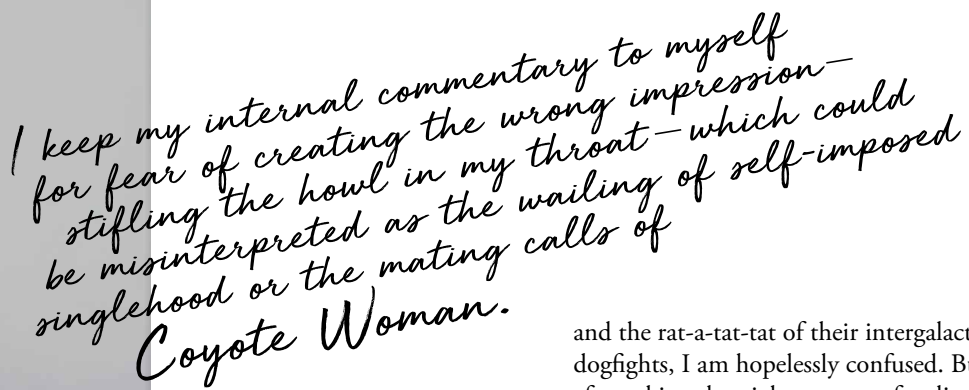 I keep my internal commentary to myself
for fear of creating the wrong impression—
stifling the howl in my throat—which could
be misinterpreted as the wailing of self-imposed
singlehood or the mating calls of
Coyote Woman.
and the rat-a-tat-tat of their intergalact
dogfights, I am hopelessly confused. Bu